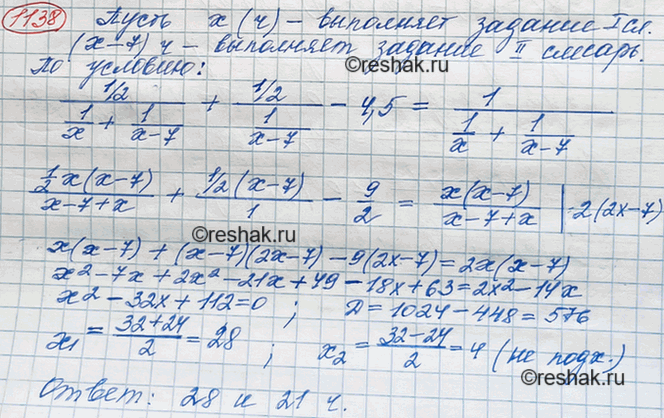 1138 Пусть x (ч) – выполняет задание I сл.
(x-7) ч – выполняет задание II слесарь.
По условию:
©reshak.ru
\frac{1/2}{\frac{1}{x} + \frac{1}{x-7}} + \frac{1/2}{\frac{1}{x-7}} - 4,5 = \frac{1}{\frac{1}{x} + \frac{1}{x-7}}
\frac{\frac{1}{2}x(x-7)}{x-7+x} + \frac{1/2(x-7)}{1} - \frac{9}{2} = \frac{x(x-7)}{x-7+x} | ·2(2x-7)
©reshak.ru
x(x-7) + (x-7)(2x-7) - 9(2x-7) = 2x(x-7)
x² - 7x + 2x² - 21x + 49 - 18x + 63 = 2x² - 14x
x² - 32x + 112 = 0 ; D = 1024 - 448 = 576
x₁ = \frac{32+24}{2} = 28 ; x₂ = \frac{32-24}{2} = 4 (не подх.)
©reshak.ru
Ответ: 28 и 21 ч.